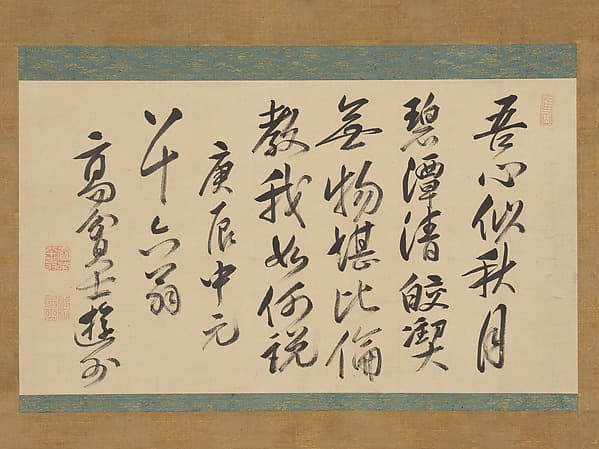 吾心似秋月
碧潭清皎潔
無物堪比倫
教我如何説
庚辰中元
八十六翁
高貧士遊外